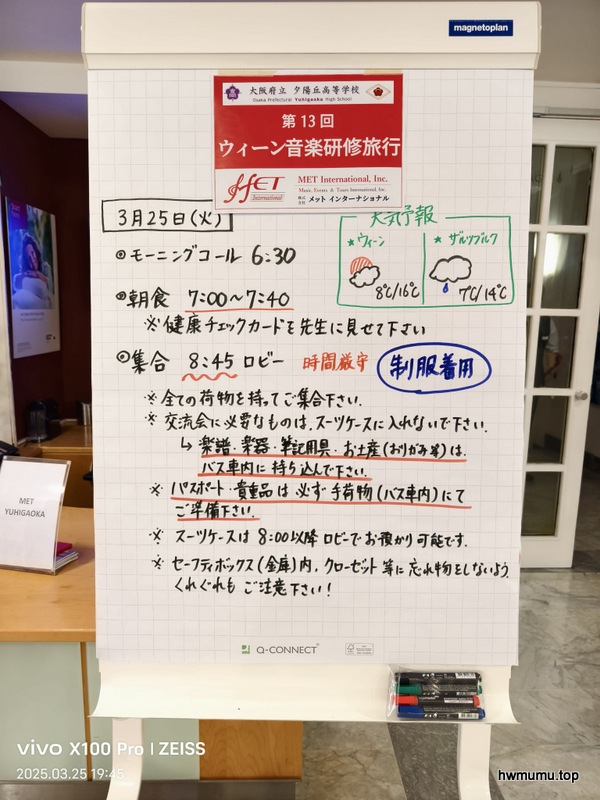 magnetoplan
大阪府立 夕陽丘高等学校
Osaka Prefectural Yuhigaoka High School
第13回
ウィーン音楽研修旅行
MET International
MET International, Inc.
Music, Events & Tours International, Inc.
株式会社 メット インターナショナル
3月25日(火)
天気予報
★ウィーン
★ザルツブルク
8℃/16℃
7℃/14℃
◎モーニングコール 6:30
◎朝食 7:00〜7:40
※健康チェックカードを先生に見せて下さい
◎集合 8:45 ロビー 時間厳守 制服着用
※全ての荷物を持ってご集合下さい。
※交流会に必要なものは、スーツケースに入れないで下さい。
↳ 楽譜・楽器・筆記用具・お土産(おりがみ等)は、
バス車内に持ち込んで下さい。
※パスポート・貴重品は必ず手荷物(バス車内)にて
ご準備下さい。
※スーツケースは 8:00以降 ロビーでお預かり可能です。
※セーフティボックス(金庫)内、クローゼット等に忘れ物をしないよう、
くれぐれもご注意下さい!
MET
YUHIGAOKA
Q-CONNECT
vivo X100 Pro | ZEISS
2025.03.25 19:45
hwmumu.top